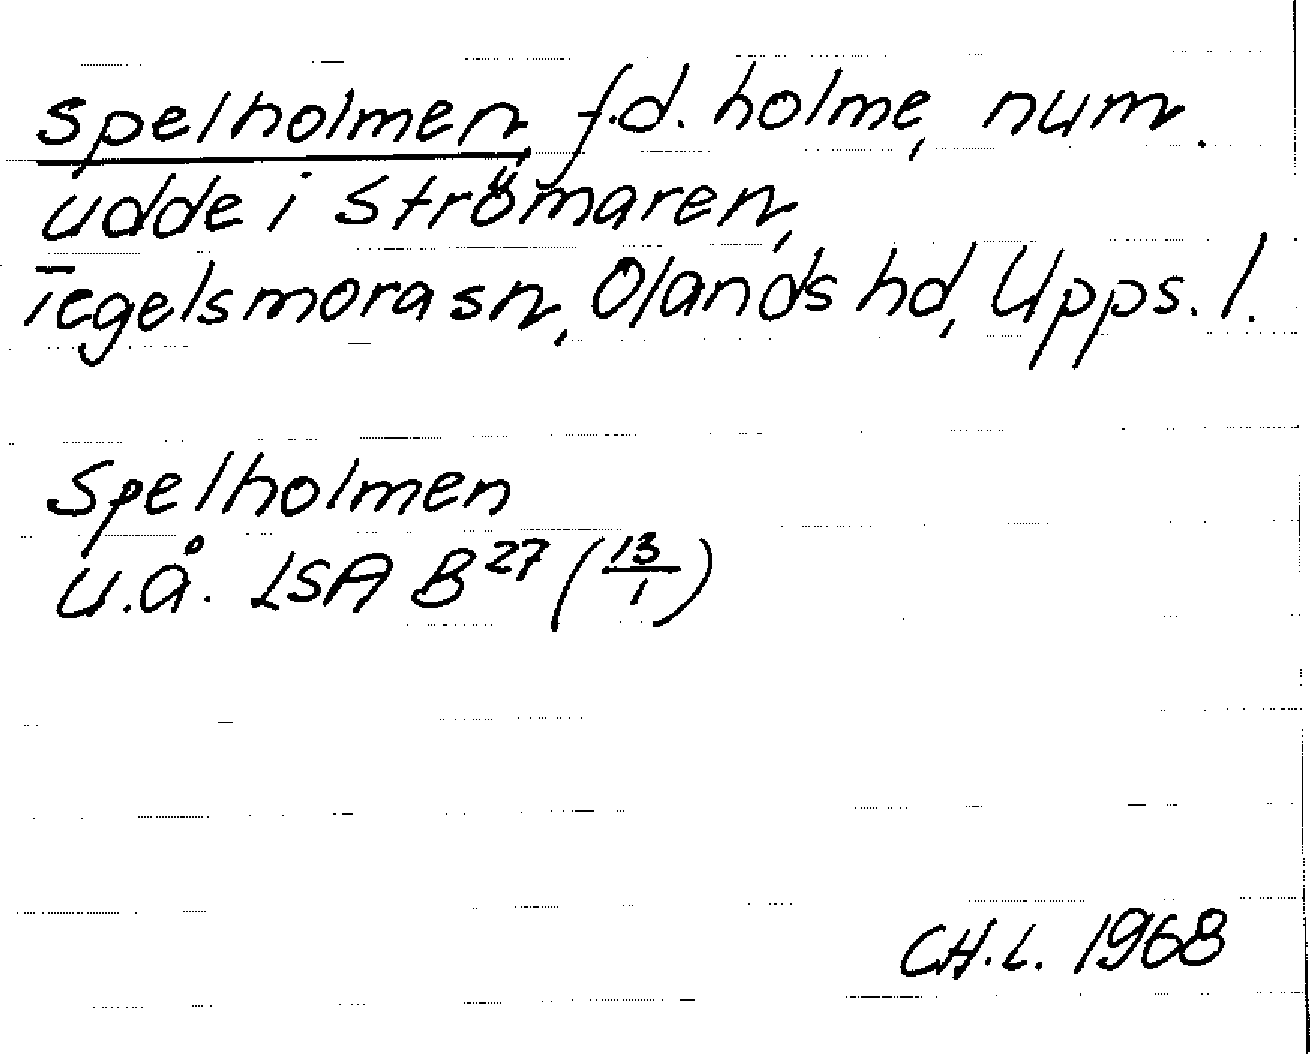 Spelholmen, f.d. holme, num.
udde i Strömaren,
Tegelsmora sn, Olands hd, Upps. l.
Spelholmen
u.å. LSA B 27 (13/1)
CH.L. 1968